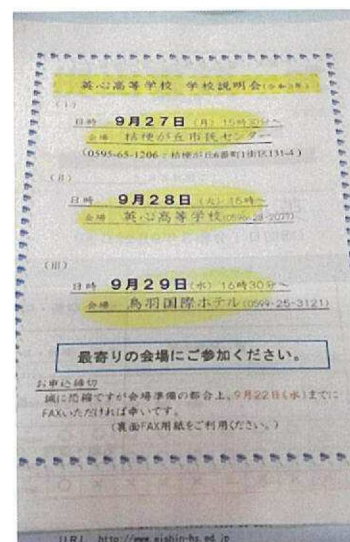 英心高等学校 学校説明会(令和3年)
(Ⅰ)
日時 9月27日(月)15時30分~
会場 桔梗が丘市民センター
(0595-65-1206:桔梗が丘6番町1街区131-4)
(Ⅱ)
日時 9月28日(火)15時~
会場 英心高等学校(0596-28-2077)
(Ⅲ)
日時 9月29日(水)16時30分~
会場 鳥羽国際ホテル(0599-25-3121)
最寄りの会場にご参加ください。
お申込締切
誠に恐縮ですが会場準備の都合上、9月22日(水)までに
FAXいただければ幸いです。
(裏面FAX用紙をご利用ください。)
URL http://www.eishin-hs.ed.jp